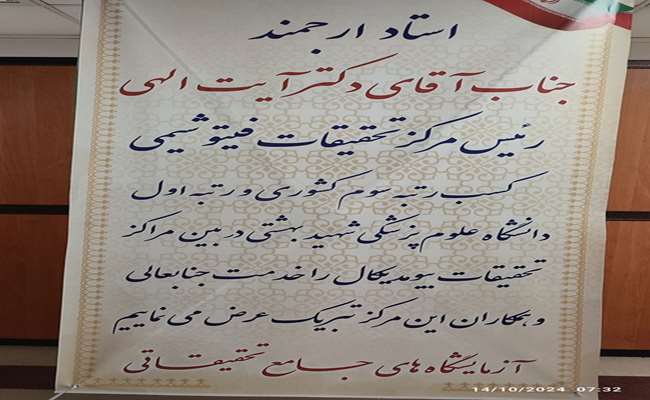 استاد ارجمند
جناب آقای دکتر آیت الهی
رئیس مرکز تحقیقات فیتوشیمی
کسب رتبه سوم کشوری و رتبه اول
دانشگاه علوم پزشکی شهید بهشتی در بین مراکز
تحقیقات بیومدیکال را خدمت جنابعالی
و همکاران این مرکز تبریک عرض می نماییم
آزمایشگاه های جامع تحقیقاتی
14/10/2024 07:32